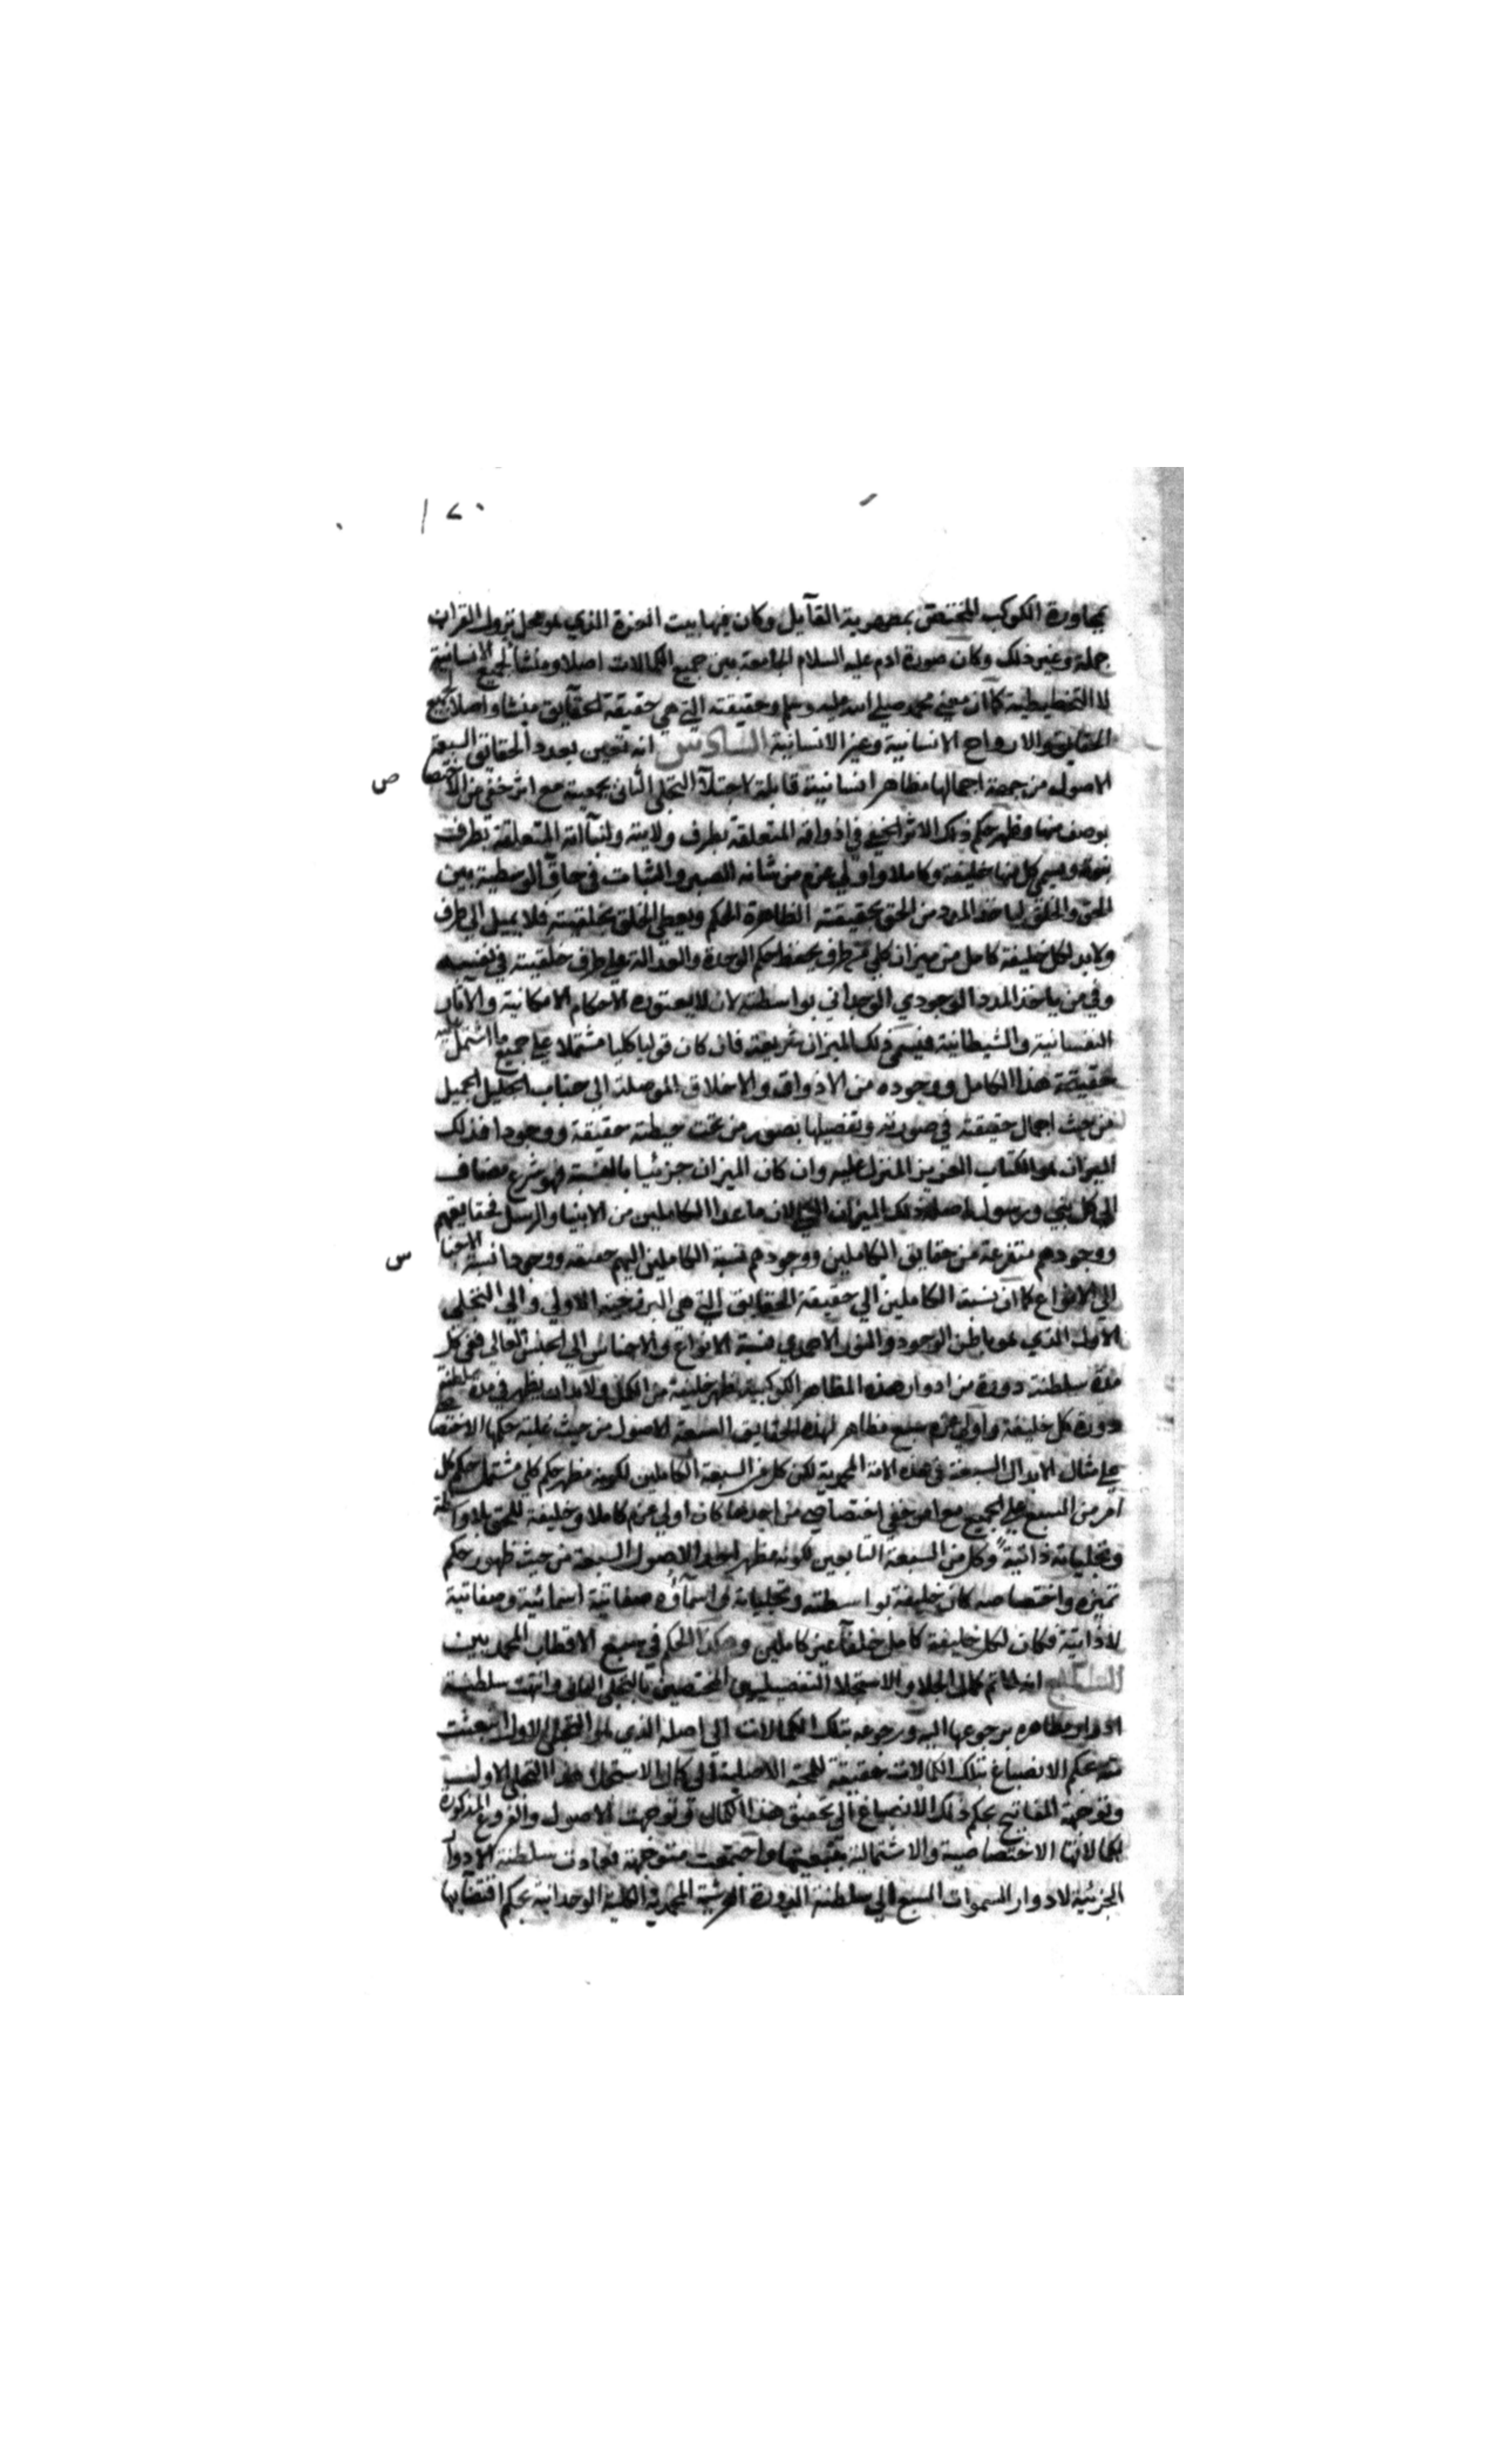 ١٧٠
بمجاورة الكوكب المختص بمظهرية القآيل وكان فيها بيت العزة الذي هو محل نزول القران
جملة وغير ذلك وكان صورة ادم عليه السلام الجامعة بين جميع الكمالات اصلا ومنشأ لجميع الانسانية
لا التخطيطية كما ان معنى محمد صلي الله عليه وسلم وحقيقته التي هي حقيقة الحقآيق منشأ واصلا لجميع
الحقايق والارواح الانسانية وغير الانسانية السادس انه تعين بعدد الحقائق السبعة
الاصول من جهة اجمالها مظاهر انسانية قابلة لاجتلآ التجلي الثاني بجمعيته مع اثر خفي من الاختصا ص
بوصف منها وظهر حكم ذلك الاثر الخفي في اذواقه المتعلقة بطرف ولايته ولنبآاته المتعلقة بطرف
نبوته وسمي كل منها خليفة وكاملا واولي عزم من شانه الصبر والثبات في حاق الوسطية بين
الحق والخلق لياخذ المدد من الحق بحقيقته الظاهرة الحكم ويعطي الخلق بخلقيته فلا يميل الي طرف
ولابد لكل خليفة كامل من ميزان كلي يحفظ حكم الوحدة والعدالة علي طرف خلقيته في نفسه
وفي من ياخذ المدد الوجودي الوحداني بواسطته لان لا يعتوره الاحكام الامكانية والآثار
النفسانية والشيطانية فيسمي ذلك الميزان شريعة فان كان قوليا كليا مشتملا علي جميع ما اشتمل عليه
حقيقة هذا الكامل ووجوده من الاذواق والاخلاق الموصلة الي جناب الجليل الجميل
من حيث اجمال حقيقته في صورته وتفصيلها بصور من تحت حيطته حقيقة ووجودا فذلك
الميزان هو الكتاب العزيز المنزل عليه وان كان الميزان جزئيا بالنسبة فهو شرع مضاف
الي كل نبي ورسول اصله ذلك الميزان الكلي لان ما عدا الكاملين من الانبيا والرسل فحقايقهم
ووجودهم متفرعة من حقايق الكاملين ووجودهم نسبة الكاملين اليهم حقيقة ووجودا نسبة الاجنا س
الي الانواع كما ان نسبة الكاملين الي حقيقة الحقايق التي هي البرزخية الاولي والي التجلي
الاول الذي هو باطن الوجود والنور الاحمدي نسبة الانواع والاجناس الي الجنس العالي ففي كل
مدة سلطنة دورة من ادوار هذه المظاهر الكوكبية ظهر خليفة من الكمل ولابد ان يظهر في مدة سلطنة
دورة كل خليفة واولي عزم سبع مظاهر لهذه الحقايق السبعة الاصول من حيث غلبة حكمها الاختصاصي
علي مثال الابدال السبعة في هذه الامة المحمدية لكن كل من السبعة الكاملين لكونه مظهر حكم كلي مشتمل حكم كل
امر من السبع علي الجميع مع امر خفي اختصاصي من احدها كان اولي عزم كاملا وخليفة للحق بلا واسطة
وتجلياته ذاتية وكل من السبعة التابعين لكونه مظهر احد الاصول السبعة من حيث ظهور حكم
تميزه واختصاصه كان خليفة بواسطته وتجلياته واسمآؤه صفاتية اسمائية وصفاتية
لا ذاتية فكان لكل خليفة كامل خلفآ غير كاملين وهكذا الحكم في سبع الاقطاب المحمديين
السابع انه لما تم كمال الجلا والاستجلا التفصيليين المختصين بالتجلي الثاني وانتهت سلطنة
ادوار مظاهره برجوعها اليه ورجوعه بتلك الكمالات الي اصله الذي هو التجلي الاول انبعثت
منه بحكم الانصباغ بتلك الكمالات حقيقة المحبة الاصلية الي كمال الاستجلا هذا التجلي الاول
وتوجهت المفاتيح بحكم ذلك الانصباغ الي تحقيق هذا الكمال وتوجهت الاصول والفروع المذكورة
بكمالاتها الاختصاصية والاشتمالية بتبعيتها واجتمعت متوجهة فعادت سلطنة الادوار
الجزئية لادوار السموات السبع الي سلطنة الدورة العرشية المحمدية الكلية الوحدانية بحكم اقتضايها